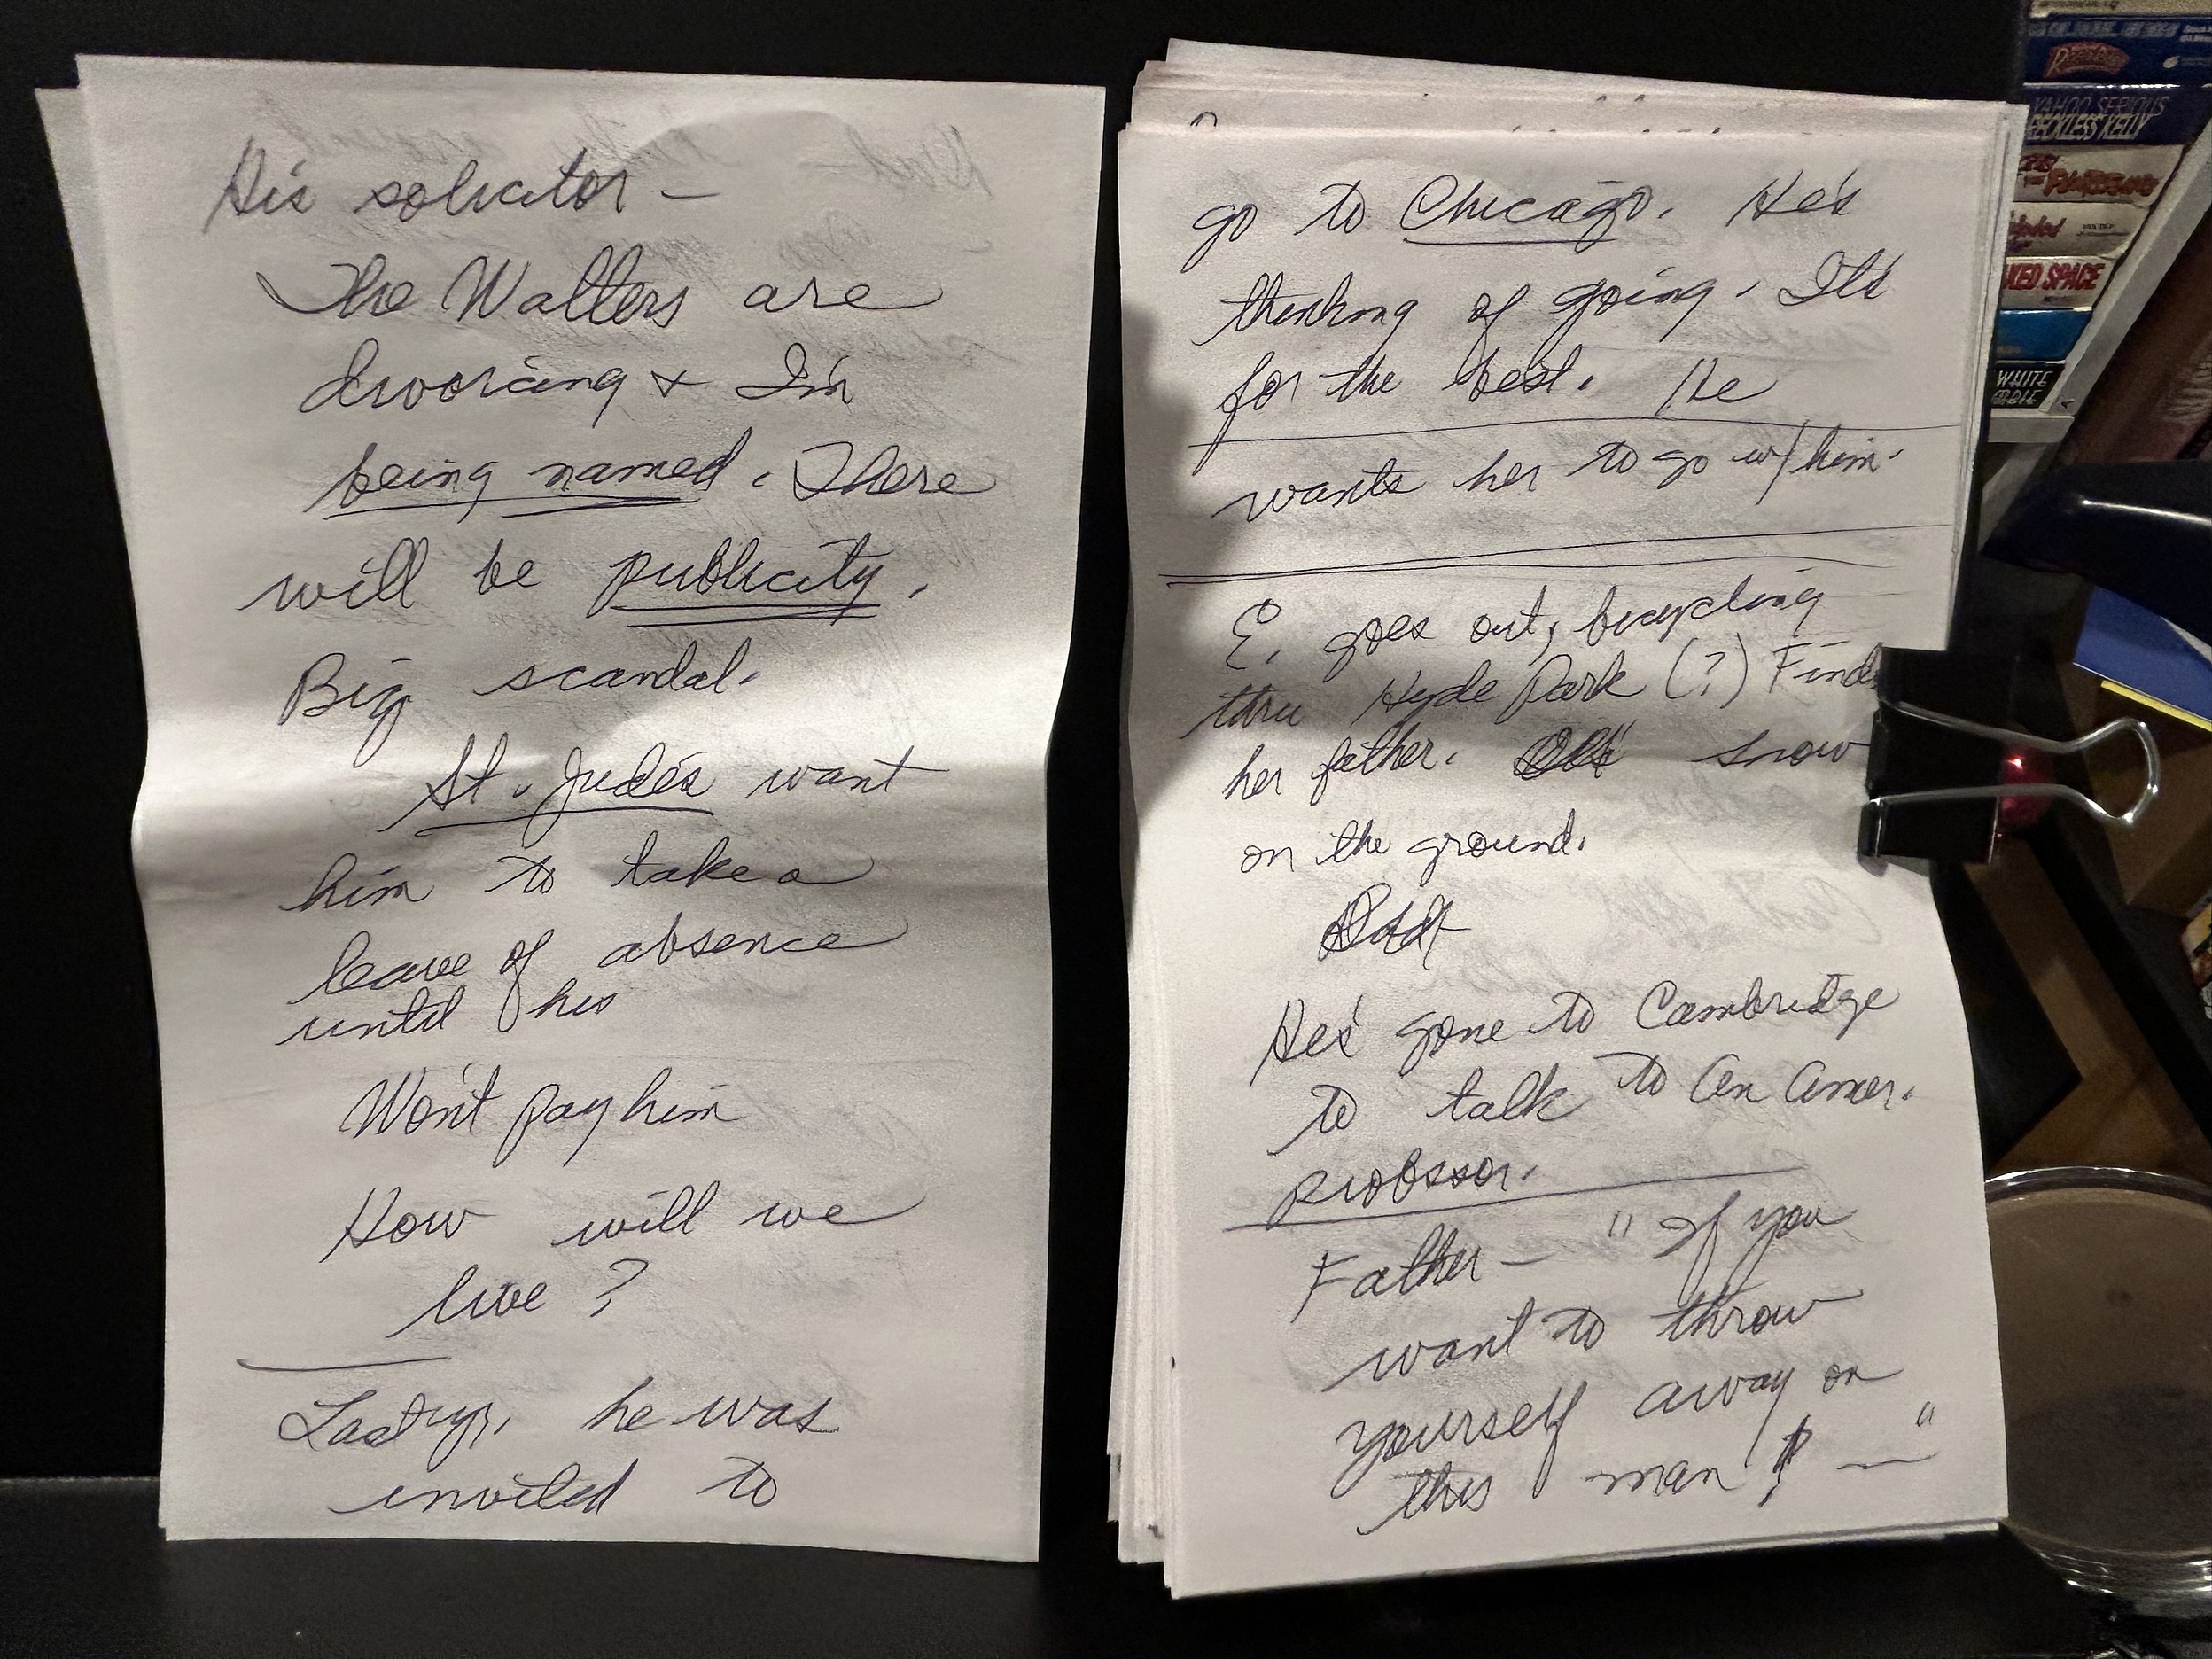 His solicitor —
The Walters are
divorcing & I'm
being named. There
will be publicity.
Big scandal.
St. Jude's want
him to take a
leave of absence
until his
Won't pay him
How will we
live?
Last yr, he was
invited to
go to Chicago. He's
thinking of going. It's
for the best. He
wants her to go w/him.
E. goes out, bicycling
thru Hyde Park (?) Finds
her father. snow
on the ground.
He's gone to Cambridge
to talk to an Amer.
professor.
Father — "If you
want to throw
yourself away on
this man — "
YAHOO SERIOUS
RECKLESS KELLY
WHITE